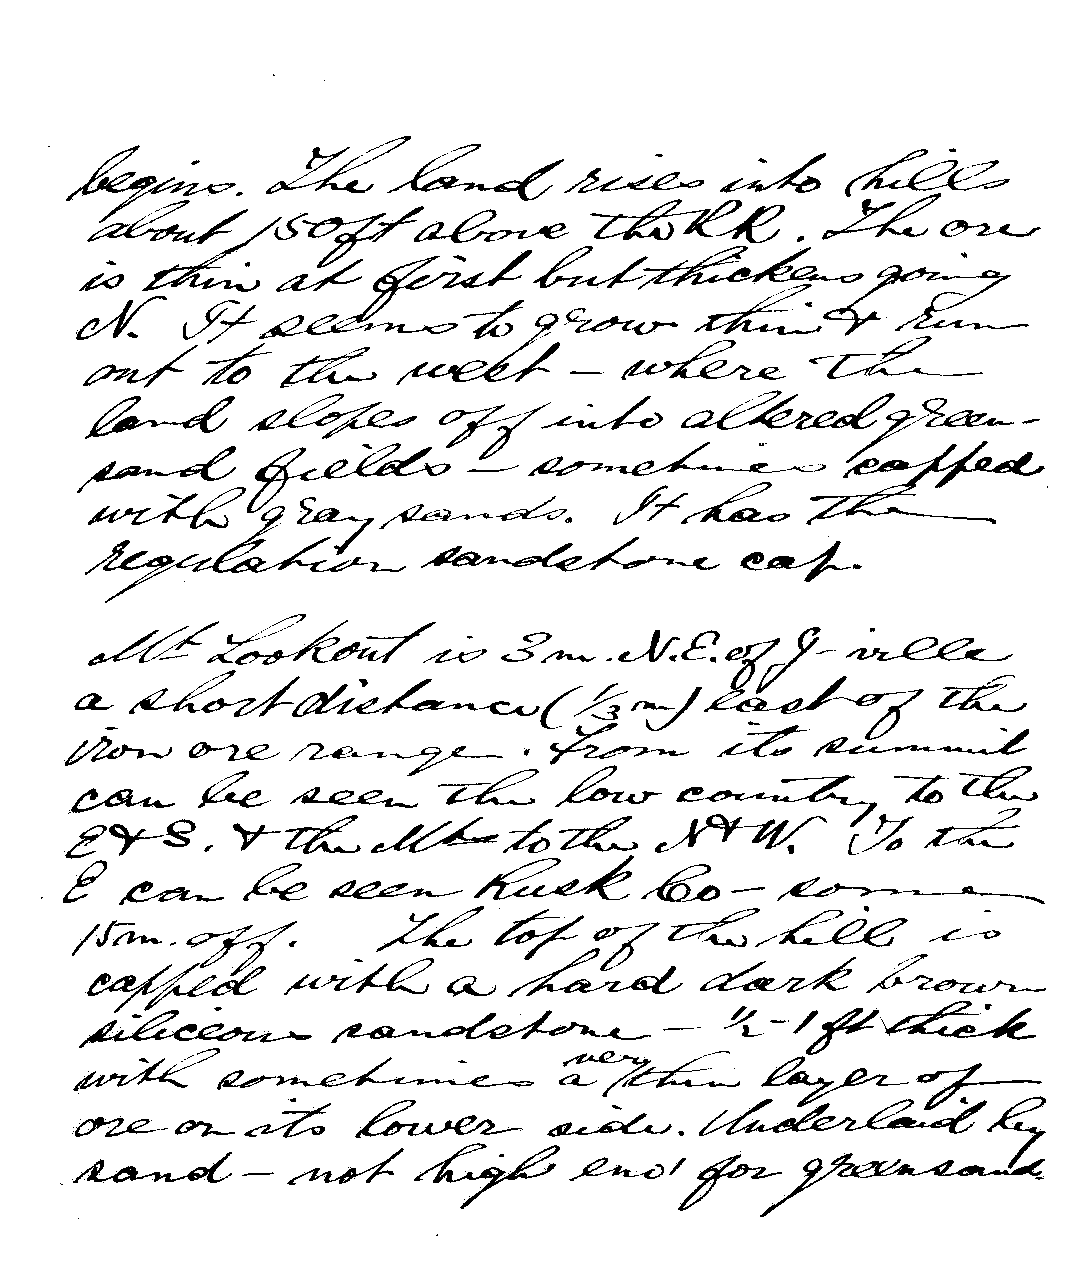 begins. The land rises into hills
about 150 ft above the RR. The ore
is thin at first but thickens going
N. It seems to grow thin & run
out to the west – where the
land slopes off into altered green-
sand fields – sometimes capped
with gray sands. It has the
regulation sandstone cap.
Mt Lookout is 3 m. N.E. of J-ville
a short distance (1/3 m) east of the
iron ore range. From its summit
can be seen the low country to the
E & S. & the Mts to the N & W. To the
E can be seen Rusk Co – some
15 m. off. The top of the hill is
capped with a hard dark brown
siliceous sandstone – 1/2 - 1 ft thick
with sometimes a very thin layer of
ore on its lower side. Underlaid by
sand – not high eno' for greensand.